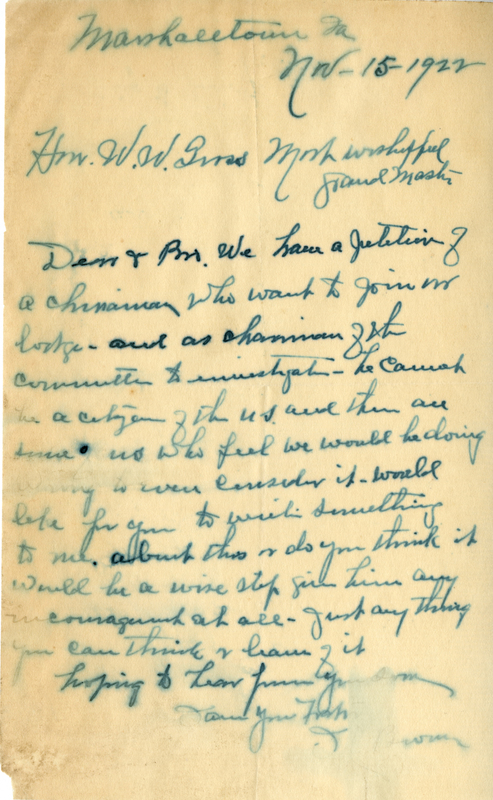 Marshalltown Ia
Nov - 15 - 1922
Hon. W. W. Gross Most worshipful
Grand Master
Dear & Bro. We have a petition of
a chinaman who want to join our
lodge - and as chairman of the
committee to investigate - he cannot
be a citizen of the U.S. and then are
some us who feel we would be doing
wrong to even consider it - would
like for you to write something
to me. about this or do you think it
would be a wise step give him any
encouragement at all - Just any thing
you can think or learn of it
hoping to hear from you soon
I am your Frat